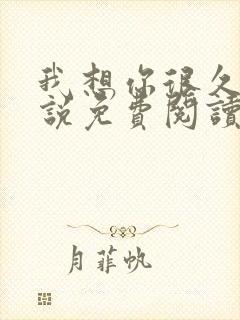 我想你很久
說免費閱讀
月菲帆